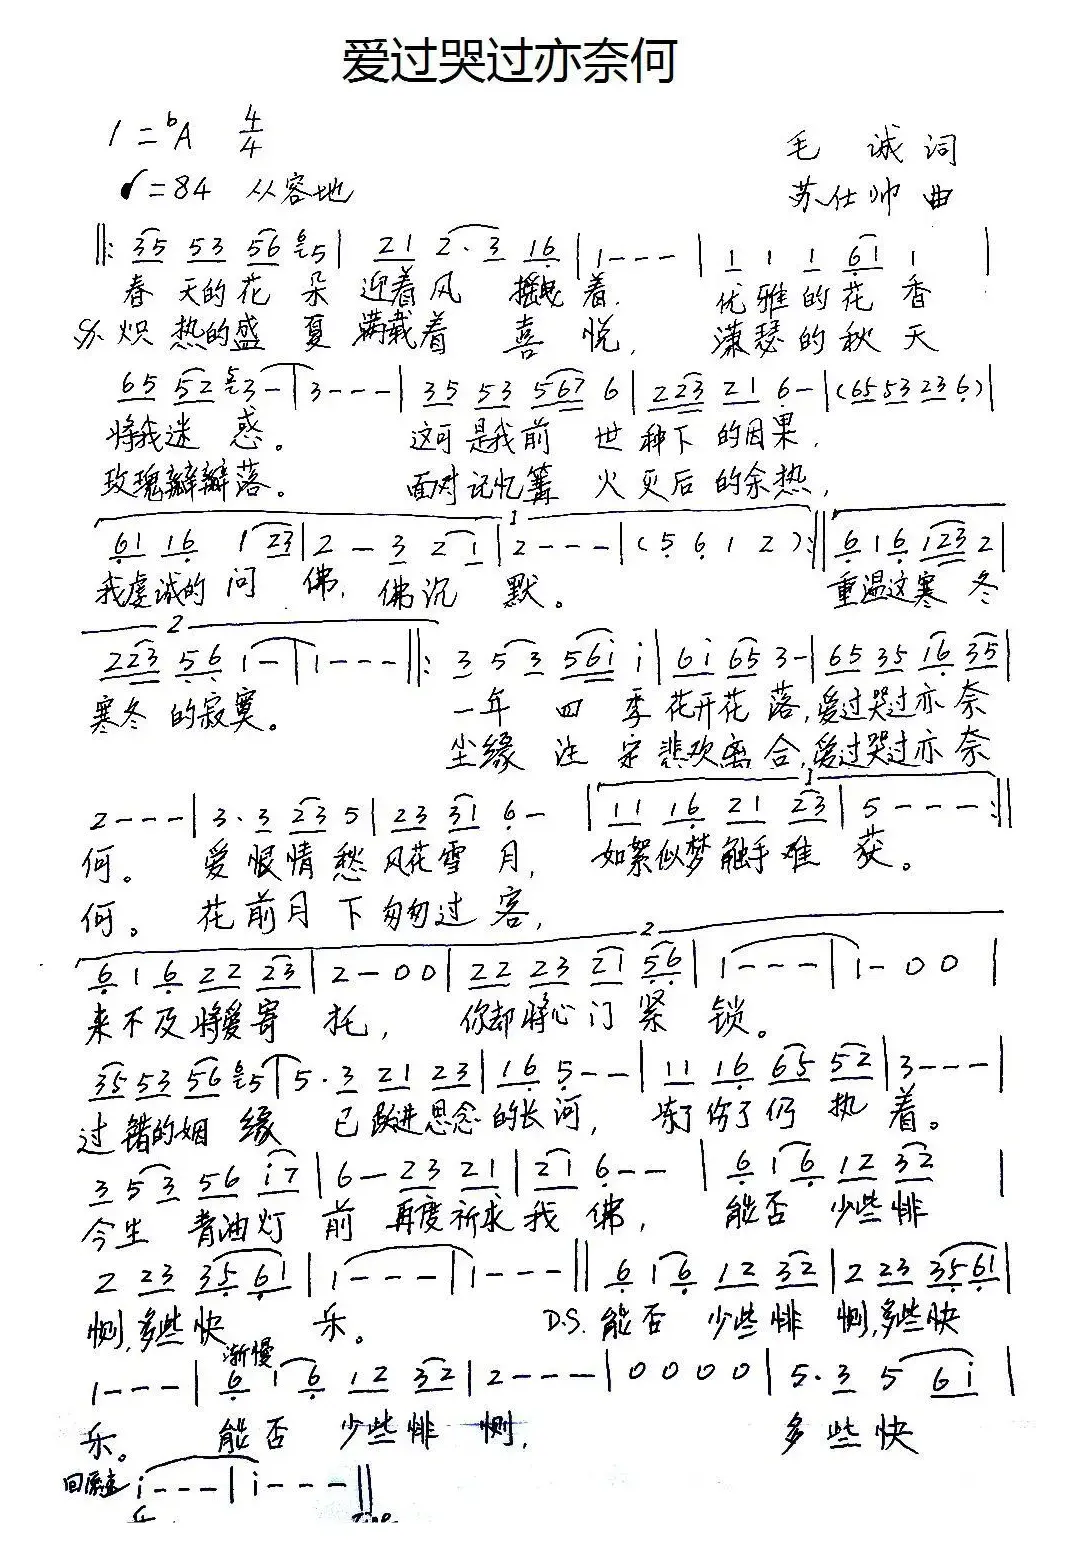 爱过哭过亦奈何
1=ᵇA 4/4
毛 诚 词
♩=84 从容地
苏仕帅 曲
‖: 35 53 56 65 | 21 2·3 16 | 1--- | 1 1 1 61 1 |
春天的花朵迎着风 摇曳着, 优雅的花香
炽热的盛夏满载着 喜悦, 潇瑟的秋天
65 52 53- | 3--- | 35 53 567 6 | 223 21 6- | (65 53 23 6) |
将我迷惑。 这可是我前世种下的因果,
玫瑰瓣瓣落。 面对记忆篝火灭后的余热,
1
61 16 1 23 | 2-3 21 | 2--- | (5 6 1 2) :‖ 6 1 6 123 2 |
我虔诚的问佛, 佛沉默。 重温这寒冬
2
223 56 1- | 1--- ‖: 3 5 3 561 1 | 61 65 3- | 65 35 16 35 |
寒冬的寂寞。 一年四季花开花落,爱过哭过亦奈
尘缘注定悲欢离合,爱过哭过亦奈
1
2--- | 3·3 23 5 | 23 31 6- | 11 16 21 23 | 5--- :‖
何。 爱恨情愁风花雪月, 如絮似梦触手难获。
何。 花前月下匆匆过客,
2
6 1 6 22 23 | 2-00 | 22 23 21 56 | 1--- | 1-00 |
来不及将爱寄托, 你都将心门紧锁。
35 53 56 65 | 5·3 21 23 | 16 5-- | 11 16 65 52 | 3--- |
过错的姻缘 已跃进思念的长河, 冻了伤了仍执着。
3 5 3 56 17 | 6- 23 21 | 21 6-- | 6 1 6 12 32 |
今生青油灯前再度祈求我佛, 能否少些悱
2 23 35 61 | 1--- | 1--- ‖ 6 1 6 12 32 | 2 23 35 61 |
恻,多些快乐。 D.S.能否少些悱恻,多些快
渐慢
1--- | 6 1 6 12 32 | 2--- | 0000 | 5·3 5 61 |
乐。 能否少些悱恻, 多些快
回原速 1--- | 1--- ‖
乐。